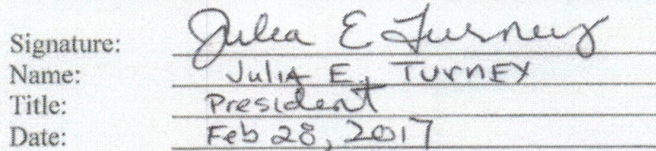 Signature: Julia E Turney
Name: Julia E. Turney
Title: President
Date: Feb 28, 2017